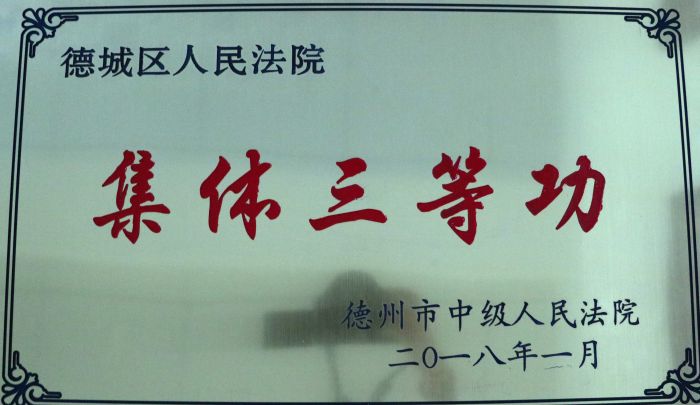 德城区人民法院
集体三等功
德州市中级人民法院
二〇一八年一月